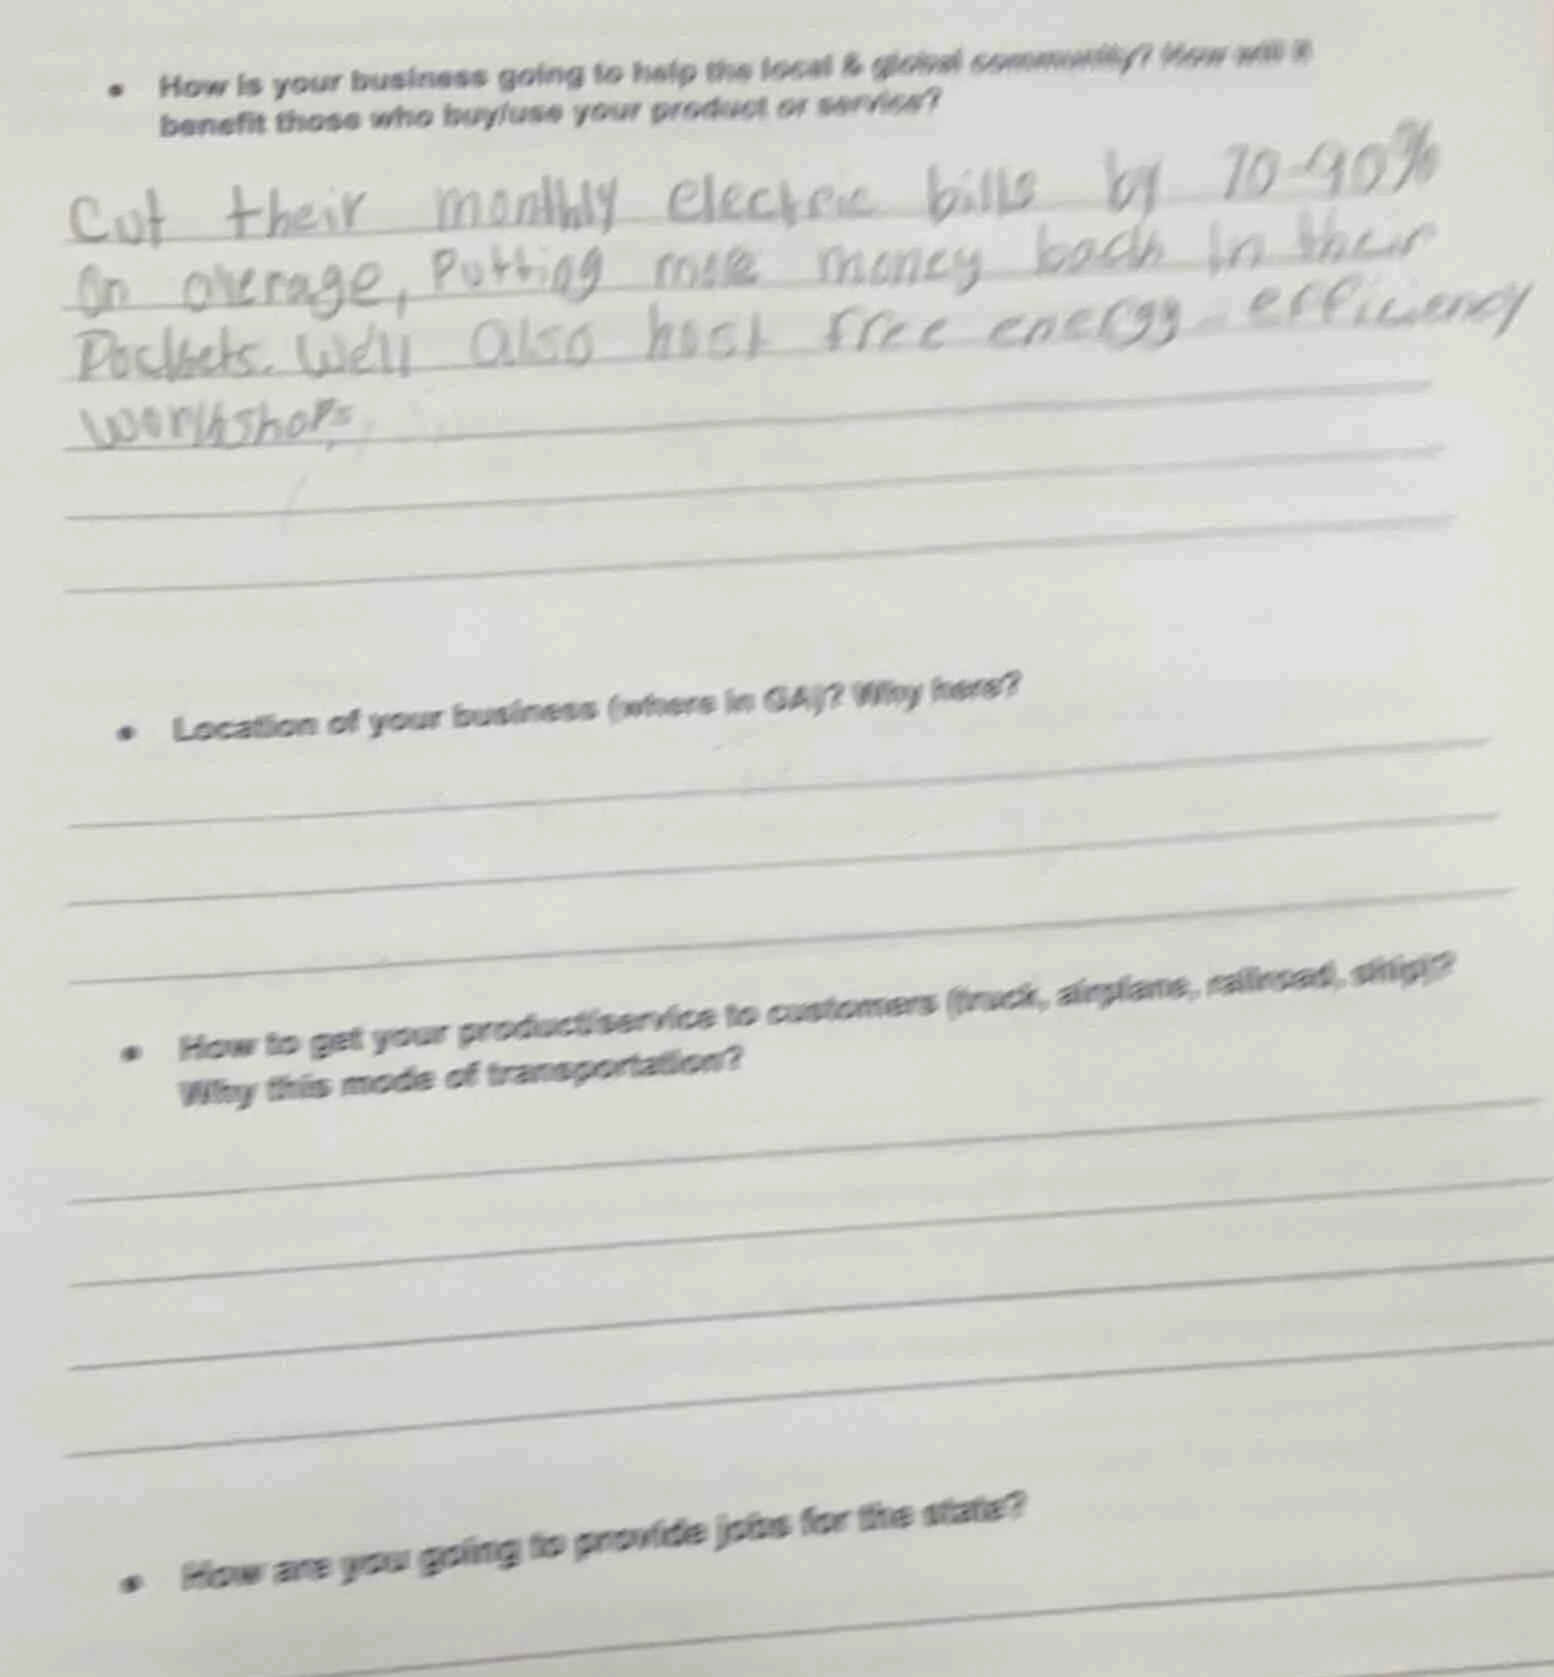 • How is your business going to help the local & global community? How will it
benefit those who buy/use your product or service?
Cut their monthly electric bills by 70-90%
on average, Putting more money back in their
Pockets. We'll also host free energy-efficiency
workshops.
• Location of your business (where in GA)? Why here?
• How to get your product/service to customers (truck, airplane, railroad, ship)?
Why this mode of transportation?
• How are you going to provide jobs for the state?